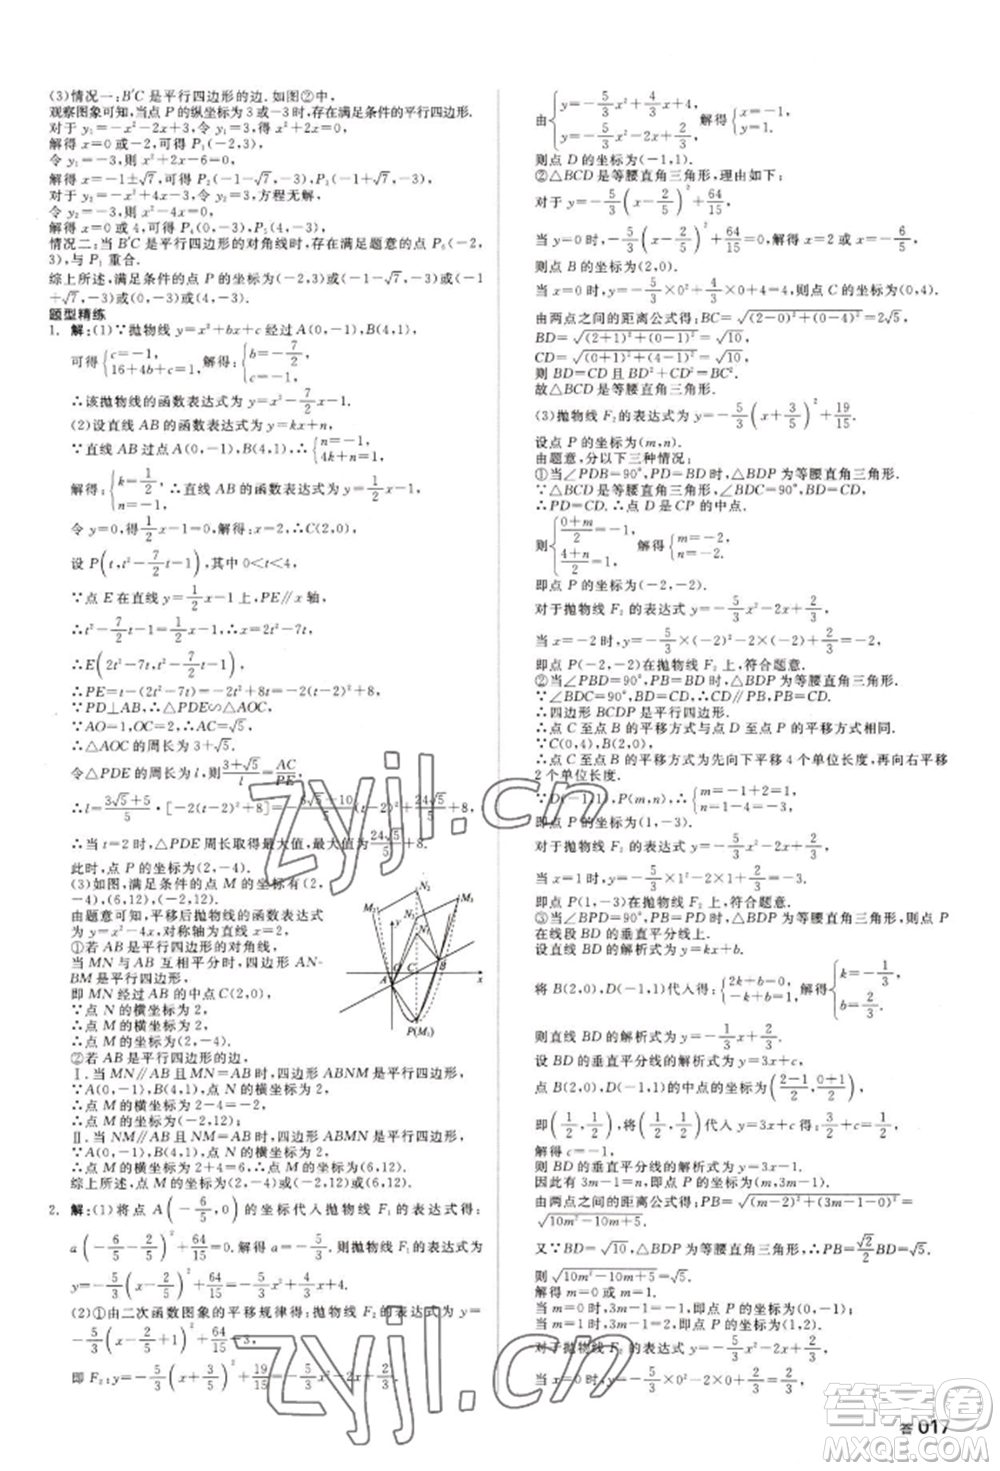 (3)情况一:B′C 是平行四边形的边.如图②中,
观察图象可知,当点 P 的纵坐标为 3 或-3时,存在满足条件的平行四边形.
对于 y₁=-x²-2x+3,令 y₁=3,则 x²+2x=0,
解得 x=0 或-2,可得 P₁(-2,3),
令 y₁=-3,则 x²+2x-6=0,
解得 x=-1±√7,可得 P₂(-1-√7,-3),P₃(-1+√7,-3),
解得 x=0 或-4,可得 P₄(0,-3),P₅(-4,-3),
情况二:当 B′C 是平行四边形的对角线时,存在满足题意的点 P₆(-2,
3),与 P₁ 重合.
综上所述,满足条件的点 P 的坐标为(-2,3)或(-1-√7,-3)或(-1
+√7,-3)或(0,-3)或(-4,-3).
题型精练
1. 解:(1)∵抛物线 y=x²+bx+c 经过点 A(0,-1),B(4,1),
可得{c=-1, 16+4b+c=1. 解得:{b=-7/2, c=-1.
∴该抛物线的函数表达式为 y=x²-7/2x-1.
(2)设直线 AB 的函数表达式为 y=kx+n,
∵直线 AB 过点 A(0,-1),B(4,1),∴{n=-1, 4k+n=1.
解得:{k=1/2, n=-1. ∴直线 AB 的函数表达式为 y=1/2x-1.
令 y=0,得 0=1/2x-1,解得:x=2,∴C(2,0).
设 P(t,t²-7/2t-1),其中 0<t<4.
∵点 E 在直线 y=1/2x-1 上,PE∥x 轴,
∴t²-7/2t-1=1/2x-1,∴x=2t²-7t,
∴E(2t²-7t,t²-7/2t-1).
∴PE=t-(2t²-7t)=-2t²+8t=-2(t-2)²+8,
∵PD⊥AB,∴△PDE∽△AOC.
∵AO=1,OC=2,∴AC=√5,
∴△AOC 的周长为 3+√5.
令△PDE 的周长为 l,则 3+√5/l=AC/PE,
∴l=3√5+5/5·[-2(t-2)²+8]=-6√5+10/5(t-2)²+24√5/5+8,
∴当 t=2 时,△PDE 周长取得最大值,最大值为24√5/5+8.
此时,点 P 的坐标为(2,-4).
(3)如图,满足条件的点 M 的坐标有(2,
-4),(6,12),(-2,12).
由题意可知,平移后抛物线的函数表达
式为 y=x²-4x,对称轴为直线 x=2.
①若 AB 是平行四边形的对角线,
当 MN 与 AB 互相平分时,四边形 AN-
BM 是平行四边形,
即 MN 经过 AB 的中点 C(2,0),
∵点 N 的横坐标为 2,
∴点 M 的横坐标为 2,
∴点 M 的坐标为(2,-4).
②若 AB 是平行四边形的边,
Ⅰ.当 MN∥AB 且 MN=AB 时,四边形 ABNM 是平行四边形,
∵A(0,-1),B(4,1),点 N 的横坐标为 2,
∴点 M 的横坐标为 2-4=-2,
∴点 M 的坐标为(-2,12).
Ⅱ.当 NM∥AB 且 NM=AB 时,四边形 ABMN 是平行四边形,
∵A(0,-1),B(4,1),点 N 的横坐标为 2,
∴点 M 的横坐标为 2+4=6,∴点 M 的坐标为(6,12).
综上所述,点 M 的坐标为(2,-4)或(-2,12)或(6,12).
2. 解:(1)将点 A(-6/5,0)的坐标代入抛物线 F₁ 的表达式得:
a(-6/5-2/5)²+64/15=0.解得 a=-5/3.则抛物线 F₁ 的表达式为
y=-5/3(x-2/5)²+64/15=-5/3x²+4/3x+4.
(2)①由二次函数图象的平移规律得:抛物线 F₂的表达式为 y=
-5/3(x-2/5+1)²+64/15-3,
即 F₂:y=-5/3(x+3/5)²+19/15
由{y=-5/3x²+4/3x+4, 解得{x=-1, y=1.
则点 D 的坐标为(-1,1).
②△BCD 是等腰直角三角形,理由如下:
对于 y=-5/3(x-2/5)²+64/15,
当 y=0 时,-5/3(x-2/5)²+64/15=0,解得 x=2 或 x=-6/5,
则点 B 的坐标为(2,0).
当 x=0 时,y=-5/3×0²+4/3×0+4=4,则点 C 的坐标为(0,4).
由两点之间的距离公式得:BC=√(2-0)²+(0-4)²=2√5,
BD=√(2+1)²+(0-1)²=√10,
CD=√(0+1)²+(4-1)²=√10,
则 BD=CD,BD²+CD²=BC².
故△BCD 是等腰直角三角形.
(3)抛物线 F₂ 的表达式为 y=-5/3(x+3/5)²+19/15.
设点 P 的坐标为(m,n).
由题意,分以下三种情况:
①当∠PDB=90°,PD=BD 时,△BDP 为等腰直角三角形.
∵△BCD 是等腰直角三角形,∠BDC=90°,BD=CD,
∴PD=CD.∴点 D 是 CP 的中点.
则{0+m/2=-1, 4+n/2=1. 解得{m=-2, n=-2.
即点 P 的坐标为(-2,-2).
对于抛物线 F₂ 的表达式 y=-5/3x²-2x+2/3,
当 x=-2 时,y=-5/3×(-2)²-2×(-2)+2/3=-2,
即点 P(-2,-2)在抛物线 F₂ 上,符合题意.
②当∠PBD=90°,PB=BD 时,△BDP 为等腰直角三角形.
∵∠BDC=90°,BD=CD,∴CD∥PB,PB=CD.
∴四边形 BCDP 是平行四边形.
∴点 C 至点 B 的平移方式与点 D 至点 P 的平移方式相同.
∵C(0,4),B(2,0),
∴点 C 至点 B 的平移方式为先向下平移 4 个单位长度,再向右平移
2 个单位长度.
∵D(-1,1),P(m,n),∴{m=-1+2=1, n=1-4=-3.
即点 P 的坐标为(1,-3).
对于抛物线 F₂ 的表达式 y=-5/3x²-2x+2/3,
当 x=1 时,y=-5/3×1²-2×1+2/3=-3,
即点 P(1,-3)在抛物线 F₂ 上,符合题意.
③当∠BPD=90°,PB=PD 时,△BDP 为等腰直角三角形,则点 P
在线段 BD 的垂直平分线上.
设直线 BD 的解析式为 y=kx+b.
将 B(2,0),D(-1,1)代入得:{2k+b=0, -k+b=1. 解得{k=-1/3, b=2/3.
则直线 BD 的解析式为 y=-1/3x+2/3.
设 BD 的垂直平分线的解析式为 y=3x+c,
点 B(2,0),D(-1,1)的中点的坐标为(2-1/2,0+1/2),
即(1/2,1/2),将(1/2,1/2)代入 y=3x+c 得:3/2+c=1/2.
解得 c=-1.
则 BD 的垂直平分线的解析式为 y=3x-1.
因此有 3m-1=n,即点 P 的坐标为(m,3m-1).
由两点之间的距离公式得:PB=√(m-2)²+(3m-1-0)²=
√10m²-10m+5.
又∵BD=√10,△BDP 为等腰直角三角形,
则√10m²-10m+5=√5.
解得 m=0 或 m=1.
当 m=0 时,3m-1=-1,即点 P 的坐标为(0,-1).
当 m=1 时,3m-1=2,即点 P 的坐标为(1,2).
对于抛物线 F₂ 的表达式 y=-5/3x²-2x+2/3,
当 x=0 时,y=-5/3×0²-2×0+2/3=2/3
答 017
zyjl.cn
zyjl.cn
答案圈
MXQE.COM